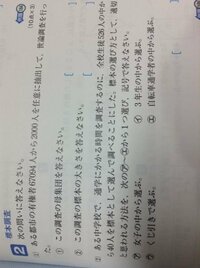 標本調査
2 次の問いに答えなさい。 (10点×3)
(1) ある都市の有権者67094人から2000人を任意に抽出して、世論調査を行った。
① この調査の母集団を答えなさい。
[ ]
② この調査の標本の大きさを答えなさい。
[ ]
(2) ある中学校で、通学にかかる時間を調査するのに、全校生徒526人の中から
人を標本として選んで調べることにした。標本の選び方として、適切
と思われる方法を、次のア〜エから1つ選び、記号で答えなさい。
ア 女子の中から選ぶ。 イ 3年生の中から選ぶ。
ウ くじ引きで選ぶ。 エ 自転車通学者の中から選ぶ。